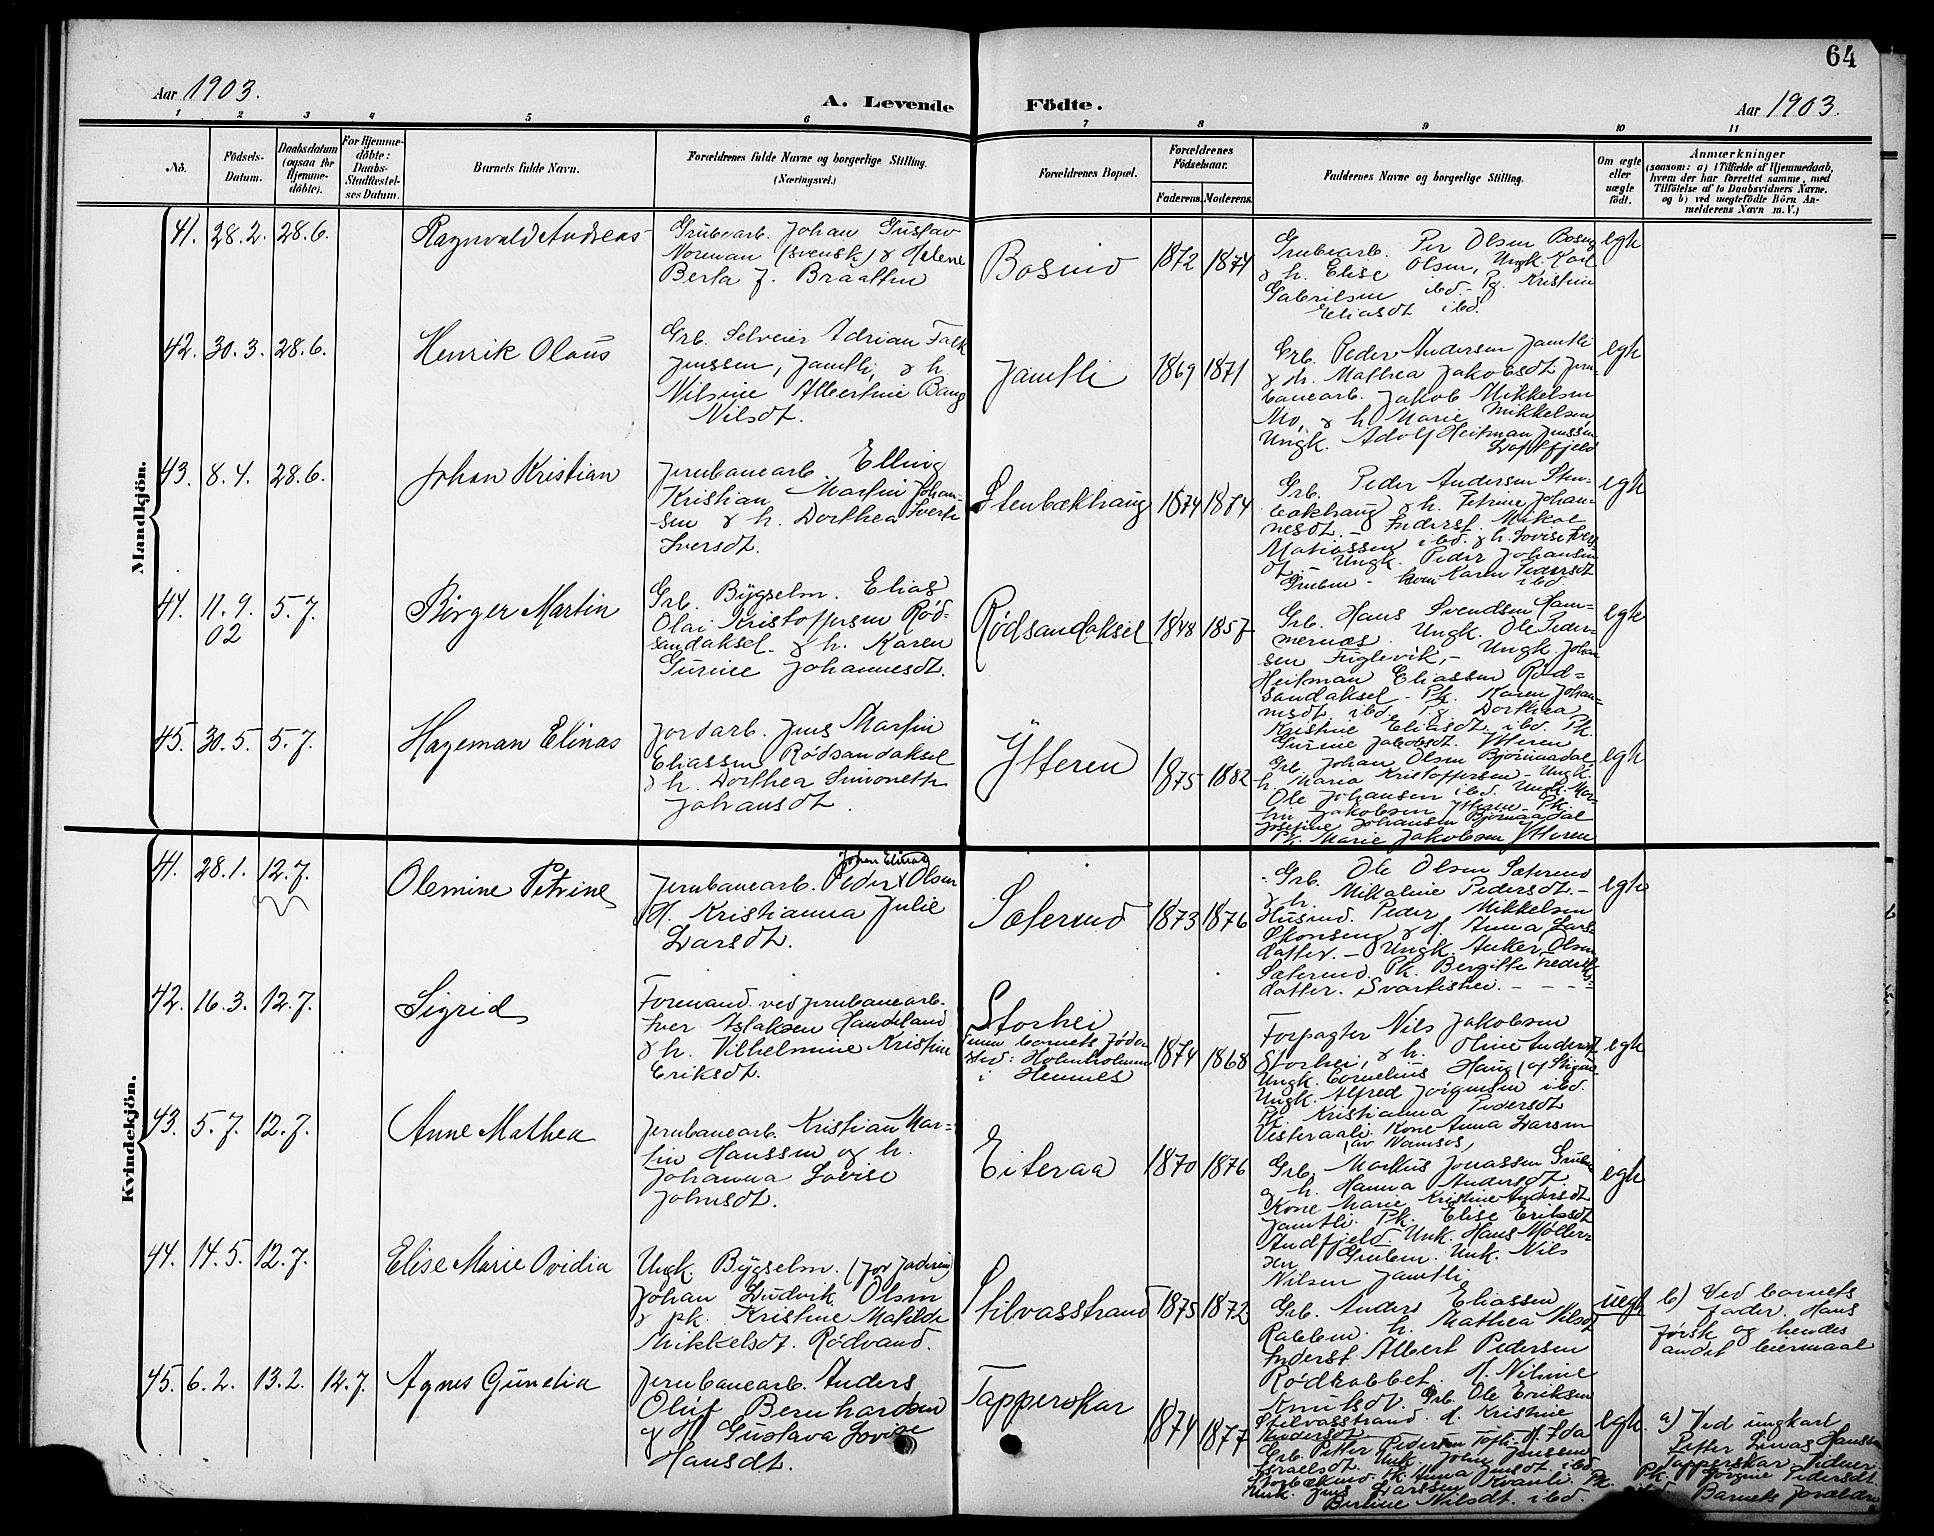 64
Aar 1903.
A. Levende Födte.
Aar 1903.
1 2 3 4 5 6 7 8 9 10 11
No.
Födsels-
Datum.
Daabsdatum
(ogsaa for
Hjemme-
döbte).
For Hjemme-
döbte:
Daabs-
Stadfæstel-
ses Datum.
Barnets fulde Navn.
Forældrenes fulde Navne og borgerlige Stilling.
(Næringsvei.)
Forældrenes Bopæl.
Forældrenes
Födselsaar.
Faderens. Moderens.
Faddernes Navne og borgerlige Stilling.
Om ægte
eller
uægte
födt.
Anmærkninger
(saasom: a) i Tilfælde af Hjemmedaab,
hvem der har forrettet samme, med
Tilföielse af to Daabsvidners Navne.
og b) ved uegtefödte Börn An-
melderens Navn m. V.)
Mandkjön.
41. 28.2. 28.6.
Ragnvald Andreas
Grubearb. Johan Gustav
Norman (svensk) & Helene
Berta J. Braatten
Bosmo
1872 1874
Grubearb. Per Olsen Bosmo
& h. Elise Olsen, Ungk. Karl
Gabrilsen ibd. - Pg. Kristine
Eliasdt ibd.
egte
42. 30.3. 28.6.
Henrik Olaus
Grb. Selveier Adrian Falk
Jenssen, Jamtli, & h.
Nilsine Albertine Bang
Nilsdt.
Jamtli
1869 1871
Grb. Peder Andersen Jamtli
& h. Mathea Jakobsdt Jern-
banearb. Jakob Mikkelsen
Mo, & h. Marie Mikkelsen
Ungk. Adolf Heitman Jenssen
Loftfjeld
egte
43. 8.4. 28.6.
Johan Kristian
Jernbanearb. Elling
Kristian Martin Johan-
sen & h. Dorthea Sverke
Iversdt.
Stenbækhaug
1874 1884
Grb. Peder Andersen Sten-
bakhaug & h. Petrine Johan-
nesdt. - Inderst. Mikal
Matiassen ibd. & h. Lovise
Ungk. Peder Johansen
Gruben - Karen Pedersdt
ibd.
egte
44. 11.9. 5.7.
02
Birger Martin
Grb. Bygselm. Elias
Olai Kristoffersen Rød-
sandaksel - & h. Karen
Gurine Johannesdt.
Rødsandaksel
1848 1857
Grb. Hans Svendsen Ham-
mernæs. Ungk. Ole Peder-
sen Fuglevik, - Ungk. Johan
Heitman Eliassen Rød-
sandaksel - Pk. Karen Johan-
nesdt ibd. Pg Dorthea
Kristine Eliasdt. ibd. Pk.
Gurine Jakobsdt. Ytteren
egte
45. 30.5. 5.7.
Hageman Elinas
Jordarb. Jens Martin
Eliassen Rødsandaksel
& h. Dorthea Simonette
Johansdt.
Ytteren
1875 1882
Grb. Johan Olsen Bjørnaadal
h. Maria Kristoffersen - Ungk.
Ole Johansen ibd. Ungk. Mar-
tin Jakobsen Ytteren - Pk.
Josefine Johansen Bjørnaadal
Pk. Marie Jakobsen Ytteren
egte
Kvindekjön.
41. 28.1. 12.7.
Olemine Petrine
Johan Elinas
Jernbanearb. Peder Olsen
& H. Kristianna Julie
Larsdt.
Sætermo
1873 1876
Grb. Ole Olsen Sætermo
& h. Mikaline Pedersdt. -
Husmd. Peder Mikkelsen
Skonseng & H. Anna Lars
datter. - Ungk. Anker Olsen
Sætermo. Pk. Bergitte Fredriks-
datter. Svartishei.
egte
42. 16.3. 12.7.
Sigrid
Formand ved jernbanearb.
Iver Aslaksen Handeland
& h. Vilhelmine Kristine
Eriksdt.
Storhei
(men barnets føde-
sted: Holmholmen
i Hemnes
1874 1868
Forpagter Nils Jakobsen
Storhei, & h. Oline Andersdt
Ungk. Cornelius Haug
Ungk. Alfred Jørgensen ibd.
Pk. Kristianna Pedersdt
Vesteraali. Kone Anna Larsen
(av Namsos)
egte
43. 5.7. 12.7.
Anne Mathea
Jernbanearb. Kristian Mar-
tin Hanssen og h.
Johanna Lovise
Johnsdt.
Eiteraa
1870 1876
Grb. Markus Jonassen Gruben
& h. Hanna Andersdt.
Kone Marie Kristine Andersdt
Jamtli. Pk. Elise Eriksdt
Andfjeld. Unk. Hans Møller-
sen Gruben. Unk. Nils
Nilsen Jamtli
egte
44. 14.5. 12.7.
Elise Marie Ovidia
Ungk. Bygselm. (for faderen)
Johan Ludvik Olsen
& pk. Kristine Matilde
Mikkelsdt. Rødvand.
Stilvasstrand
1875 1872
Grb. Anders Eliassen
h. Mathea Nilsdt
Inderst Albert Pedersen
Rødkobbet. H. Niline
Knutsdt. Grb. Ole Eriksen
Stilvasstrand. H. Kristine
Andersdt
uegt
b) Ved barnets
fader. Hans
første og hendes
andet leiermaal
45. 6.2. 13.2. 12.7.
Agnes Gunelia
Jernbanearb. Anders
Oluf Bernhardsen
& H. Gustava Lovise
Hansdt.
Tapperskar
1874 1877
Grb. Petter Pedersen H. Ida
Israelsdt. Unk. John Jenssen
Pk. Anna Jensdt. ibd.
Unk. Jens Larssen Kvanli. Pk.
Berline Nilsdt. ibd.
egte
a) Ved ungkarl
Petter Linas Hanssen
Tapperskar. Vidner:
Pk. Jørgine Pedersdt
ibd. Barnets forældre